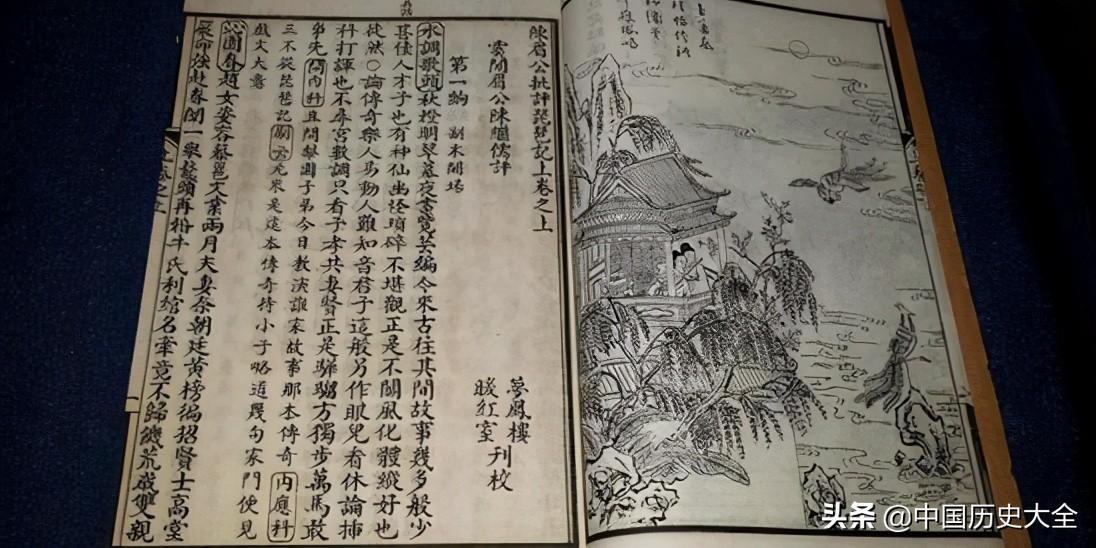 陳眉公批評琵琶記上卷之上
雲間眉公陳繼儒評
夢鳳樓
暖紅室
刊校
第一齣 副末開場
水調歌頭 秋燈明翠幕夜案覽芸編今來古往其間故事幾多般少
甚佳人才子也有神仙幽怪瑣碎不堪觀正是不關風化體縱好也
徒然○論傳奇樂人易動人難知音君子這般另作眼兒看休論插
科打諢也不尋宮數調只看子孝共妻賢正是驊騮方獨步萬馬敢
爭先 問內科 且問後房子弟今日敷演誰家故事那本傳奇 內應科
三不從琵琶記 副末云 元來是這本傳奇待小子略道幾句家門便見
戲文大意
沁園春 趙女姿容蔡邕文業兩月夫妻奈朝廷黃榜徧招賢士高堂
嚴命強赴春闈一舉鰲頭再婚牛氏利綰名牽竟不歸饑荒歲雙親
头条 @中国历史大全